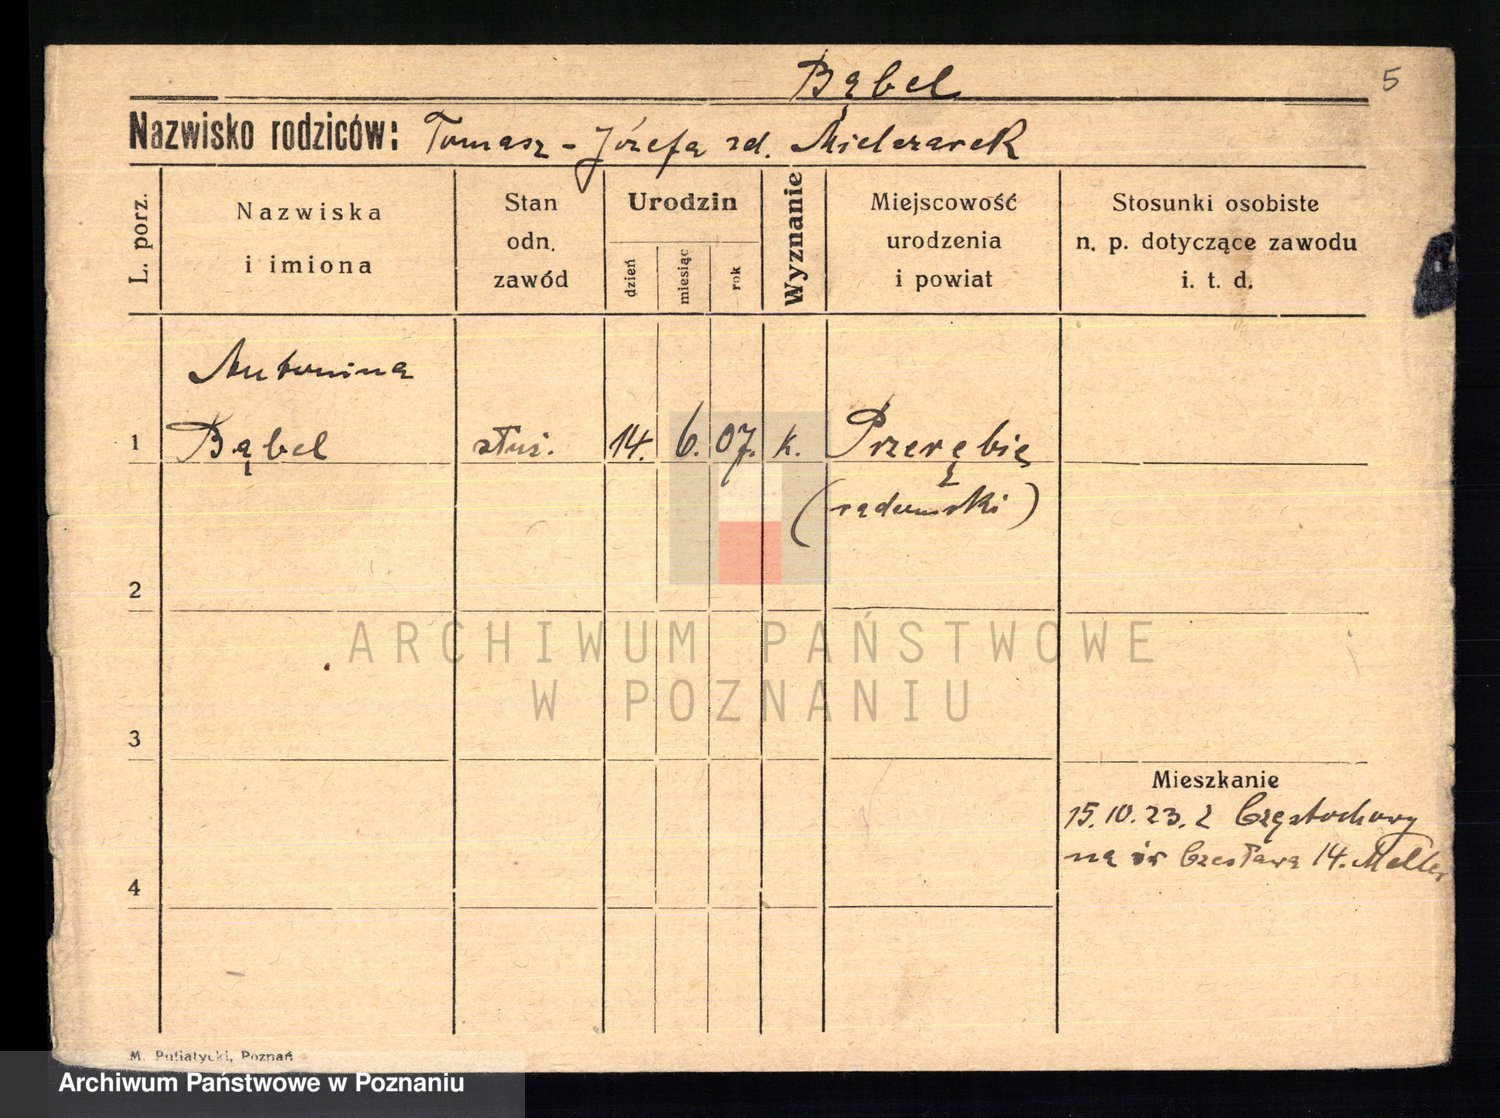 Bąbel
5
Nazwisko rodziców: Tomasz - Józefa zd. Mielczarek
L. porz.
Nazwiska
i imiona
Stan
odn.
zawód
Urodzin
dzień
miesiąc
rok
Wyznanie
Miejscowość
urodzenia
i powiat
Stosunki osobiste
n. p. dotyczące zawodu
i. t. d.
Antonina
1 Bąbel służ. 14. 6. 07. k. Przerębie
(radomski)
2
ARCHIWUM PAŃSTWOWE
W POZNANIU
3
Mieszkanie
15.10.23. z Częstochowy
4
na św Czesława 14. Meller
M. Putiatycki, Poznań
Archiwum Państwowe w Poznaniu